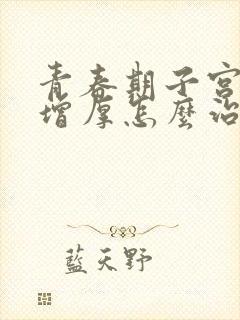 青春期子宮
增厚怎麼治
藍天野